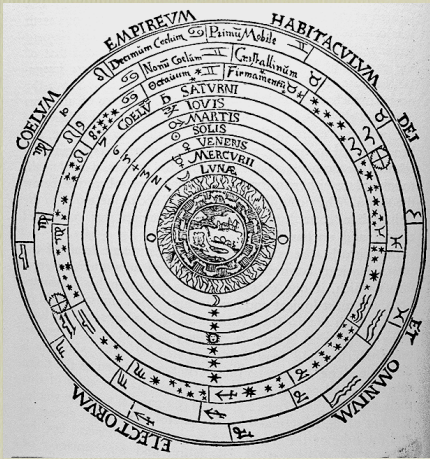 COELUM EMPIREUM HABITACULUM DEI ET OMNIUM ELECTORUM
Decimum Coelum Primũ Mobile
Nonũ Coelum Cristallinũm
Octauum Firmamentũ
COELŨ SATURNI
IOVIS
MARTIS
SOLIS
VENERIS
MERCURII
LUNÆ